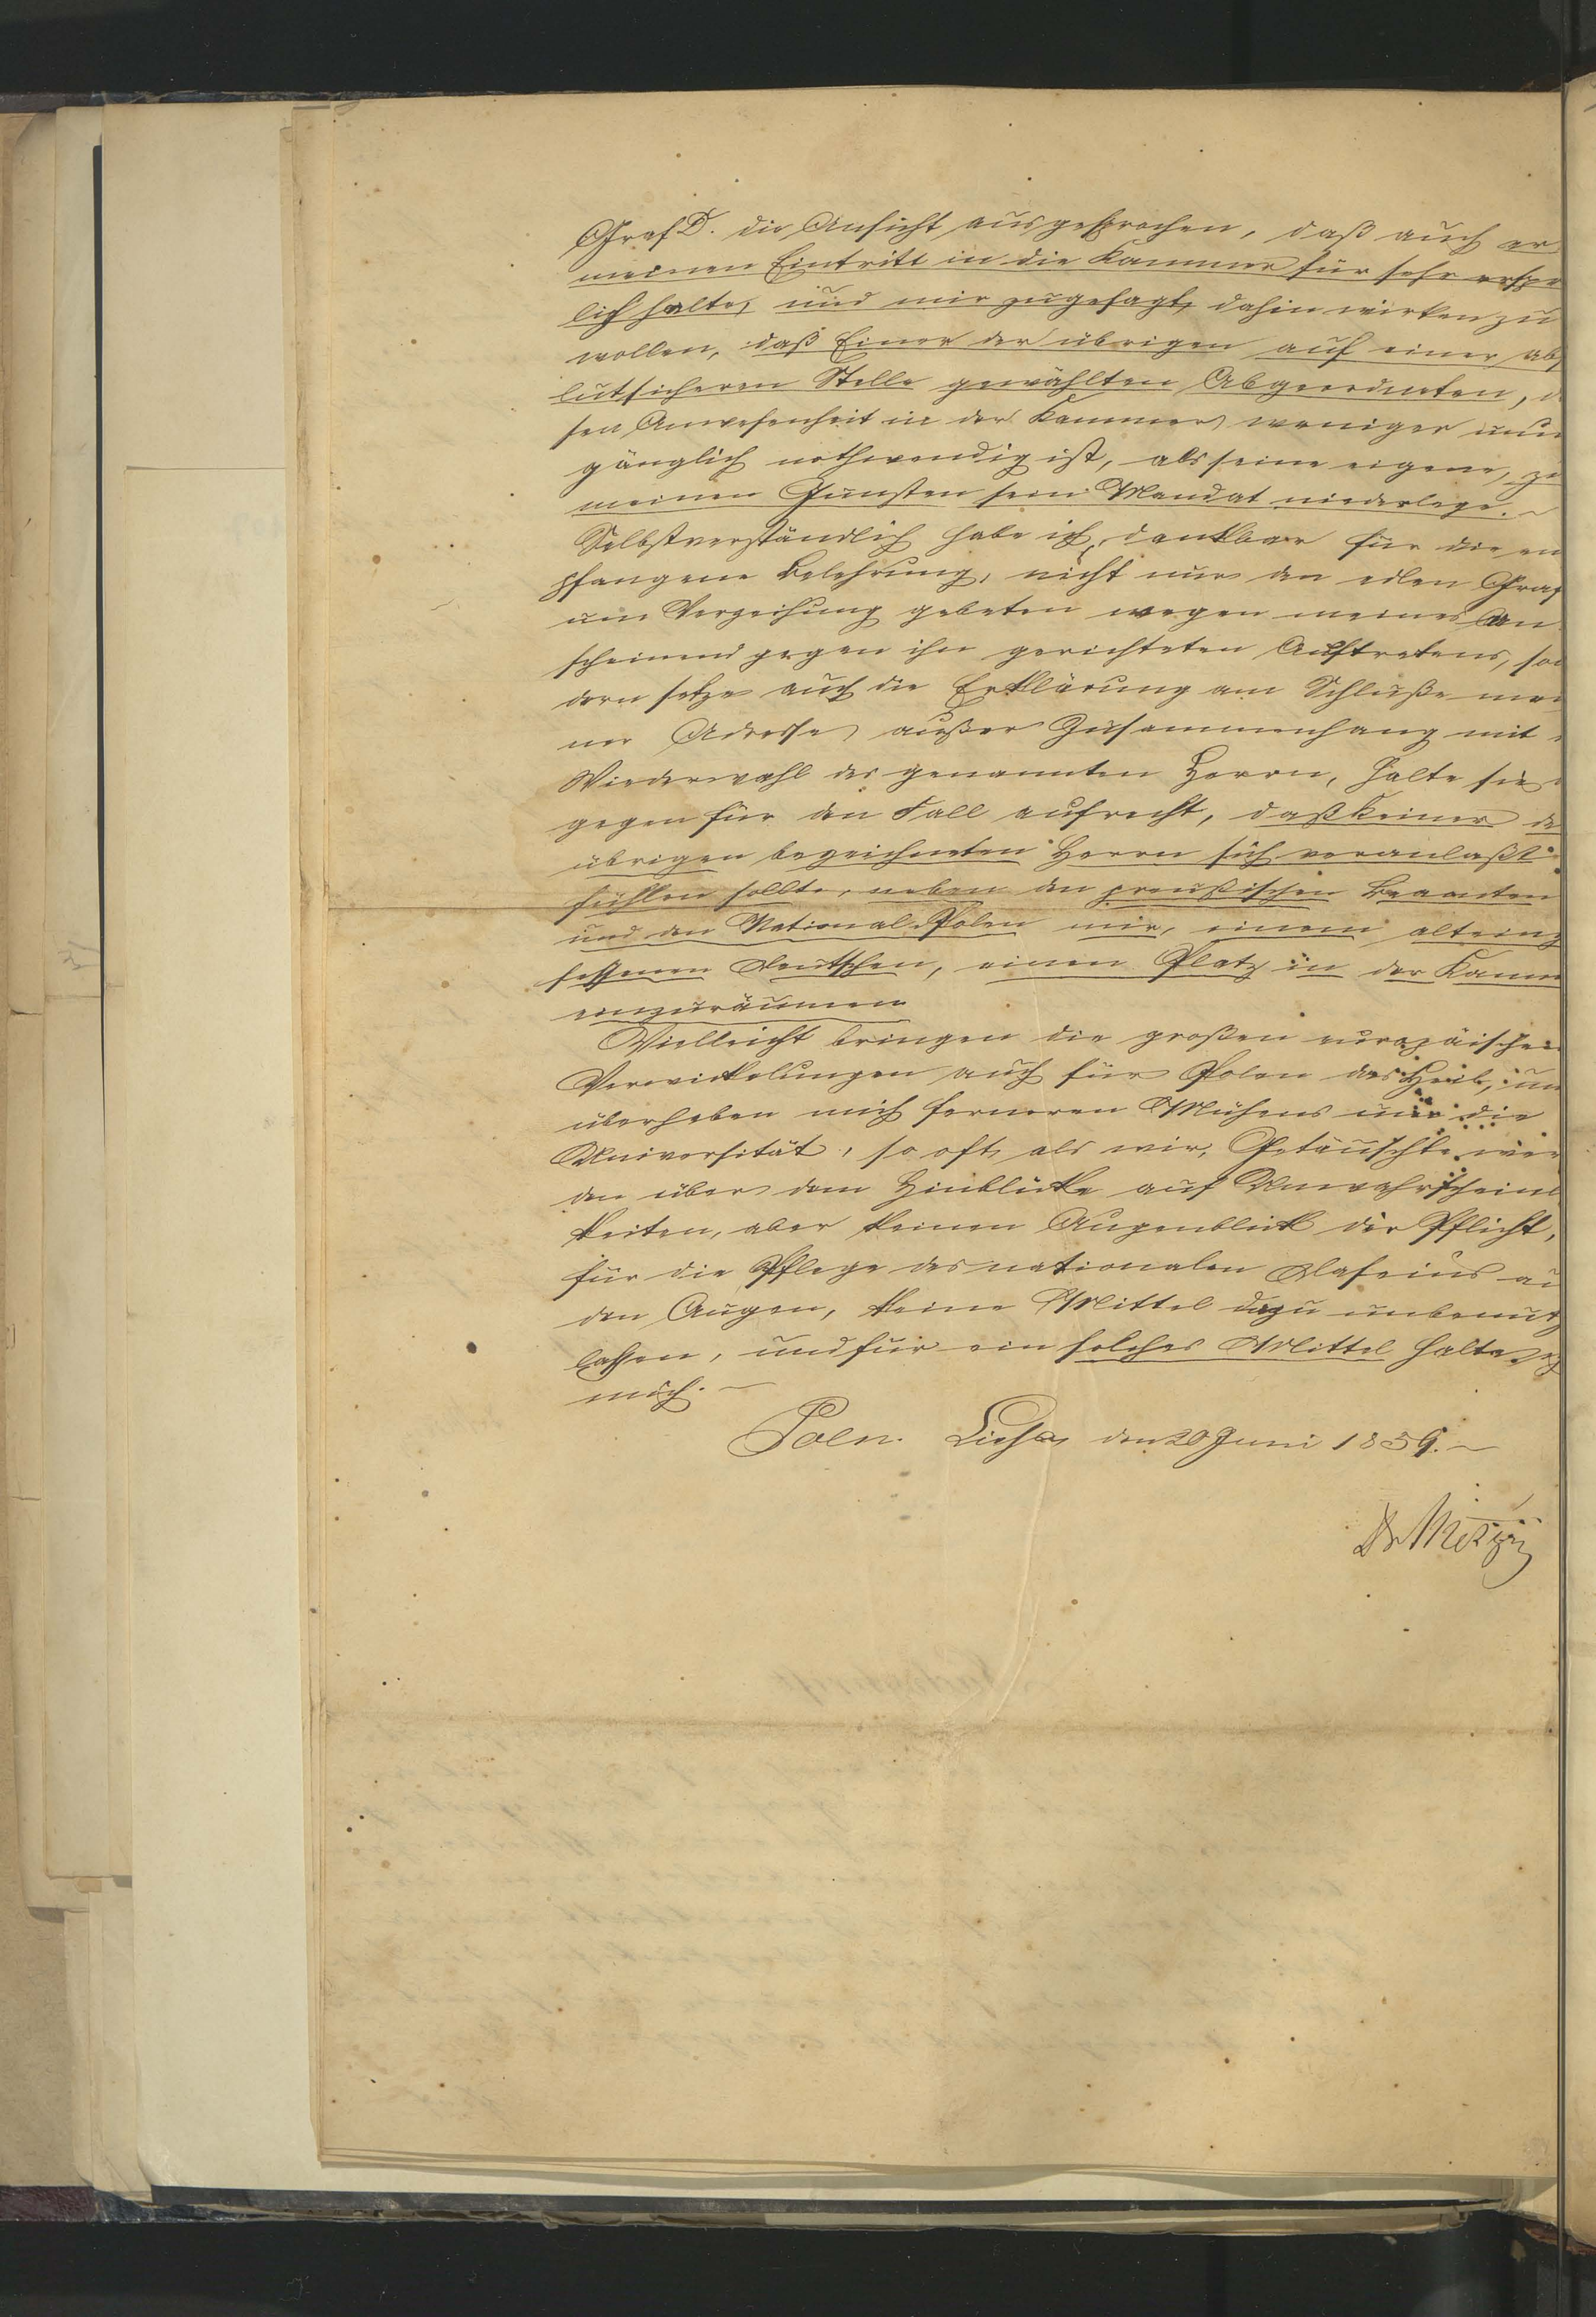 Graf D. die Ansicht ausgesprochen, daß auch er
meinen Eintritt in die Kammer für sehr ersprie
lich halte, und mir zugesagt, dahin wirken zu
wollen, daß Einer der übrigen auf einer abso
lutsicheren Stelle gewählten Abgeordneten, d
sen Anwesenheit in der Kammer weniger unum
gänglich nothwendig ist, als seine eigene, zu
meinen Gunsten sein Mandat niederlege. –
Selbstverständlich habe ich, dankbar für die em
pfangene Belehrung, nicht nur den edlen Graf
um Verzeihung gebeten wegen meines an
scheinend gegen ihn gerichteten Auftretens, son
dern setze auch die Erklärung am Schluße mei
ner Adresse außer Zusammenhang mit
Wiederwahl des genannten Herrn, halte sie
gegen für den Fall aufrecht, daß Keiner de
übrigen bezeichneten Herrn sich veranlaßt
fühlen sollte, neben den preußischen Beamten
und den National-Polen mir, einem altein
sessenen Deutschen, einen Platz in der Kamm
einzuräumen
Vielleicht bringen die großen europäischen
Verwickelungen auch für Polen das Heil, un
überheben mich ferneren Mühens um die
Universität, so oft als wir, Getäuschte
den über dem Hinblicke auf Unwahrscheinl
keiten, aber keinen Augenblick die Pflicht,
für die Pflege des nationalen Daseins au
den Augen, keine Mittel dazu unbenutz
lassen, und für ein solches Mittel halte ich
mich. –
Poln. Lissa den 20 Juni 1859. –
Dr Metzig